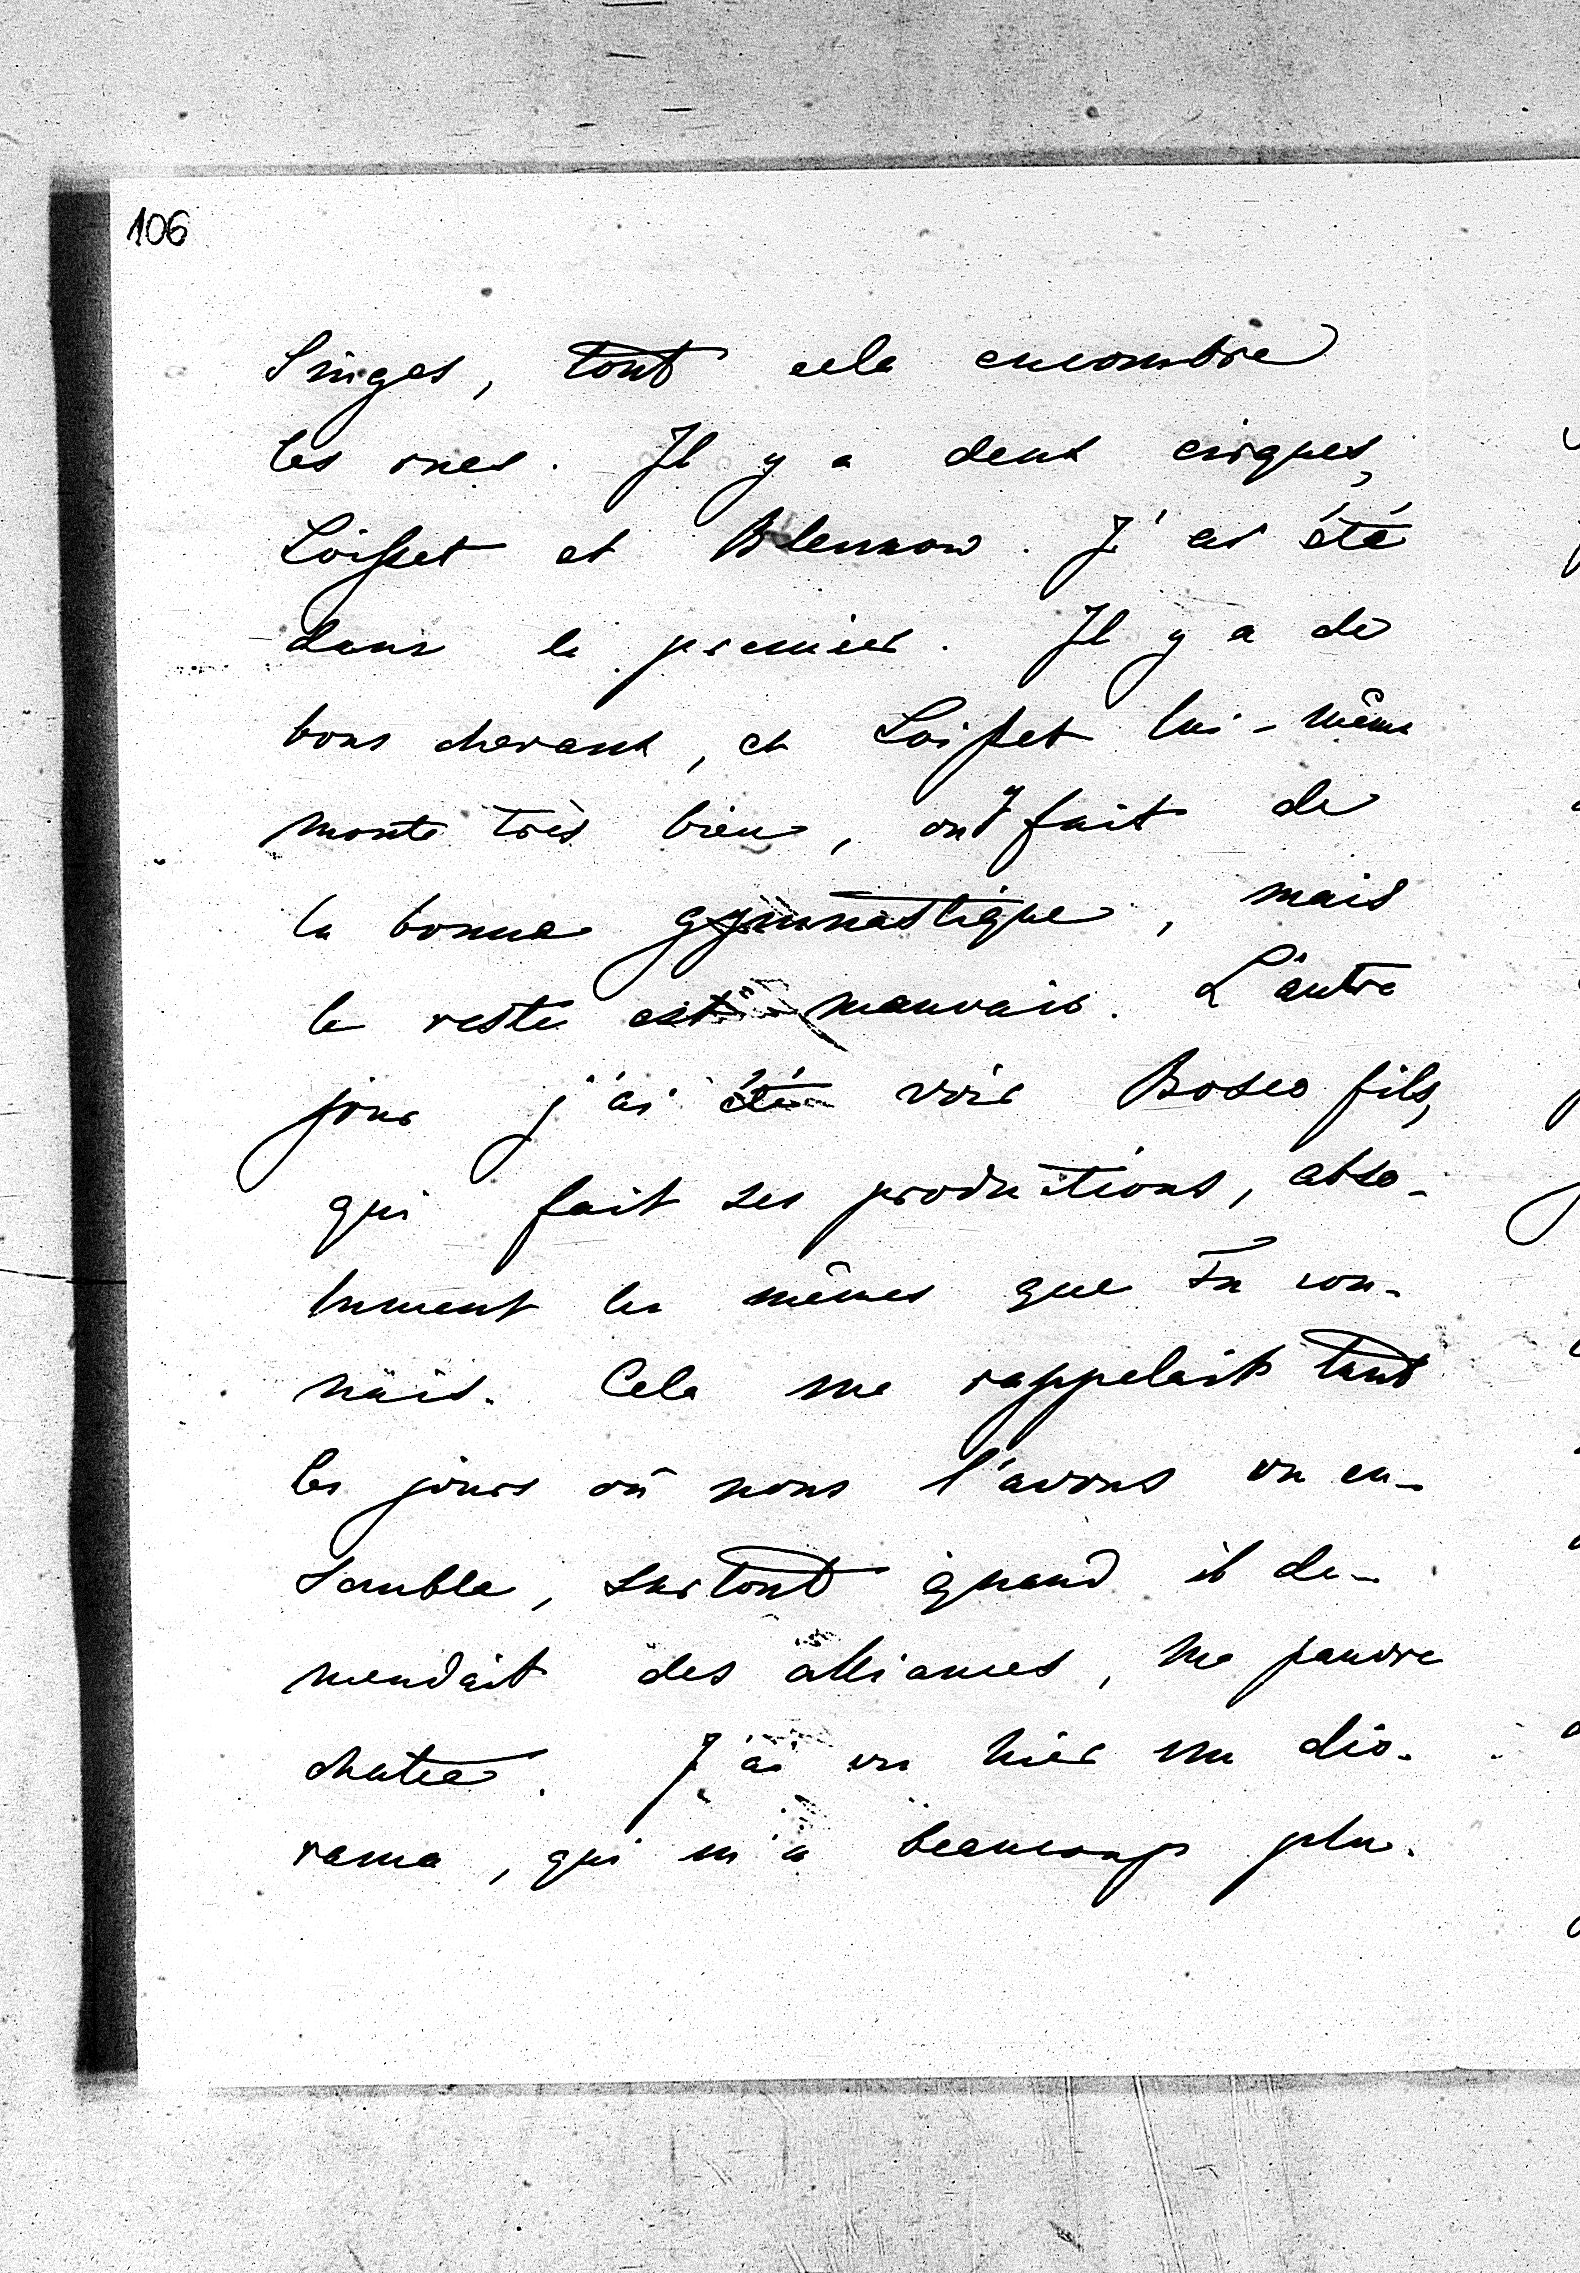 106
Singes, tout cela encombre
les rues. Il y a deux cirques,
Loisset et Blennow. J'ai été
dans le premier. Il y a de
bons chevaux, et Loisset lui-même
monte très bien, on y fait de
la bonne gymnastique, mais
le reste est mauvais. L'autre
jour j'ai été voir Bosco fils,
qui fait ses productions, abso-
lument les mêmes que Tu con-
nais. Cela me rappelait tant
les jours où nous l'avons vu en-
semble, surtout quand il de-
mandait des alliances, ma pauvre
J'ai vu hier un dio-
rama, qui m'a beaucoup plu.